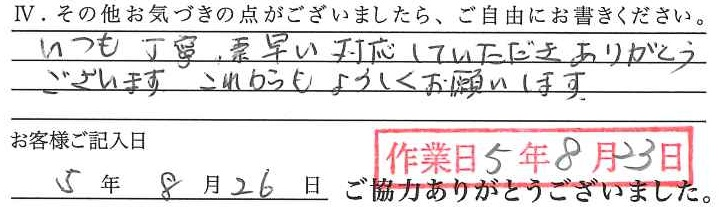 Ⅳ．その他お気づきの点がございましたら、ご自由にお書きください。
いつも丁寧、素早い対応していただきありがとう
ございます これからもよろしくお願いします
お客様ご記入日
作業日5年8月23日
5年8月26日 ご協力ありがとうございました。